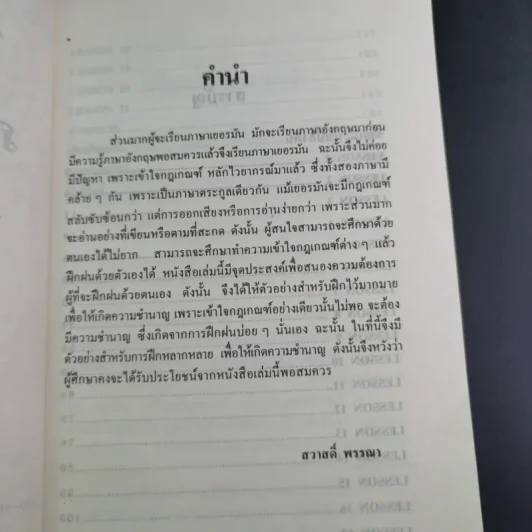 คำนำ
ส่วนมากผู้จะเรียนภาษาเยอรมัน มักจะเรียนภาษาอังกฤษมาก่อน
มีความรู้ภาษาอังกฤษพอสมควรแล้วจึงเรียนภาษาเยอรมัน ฉะนั้นจึงไม่ค่อย
มีปัญหา เพราะเข้าใจกฎเกณฑ์ หลักไวยากรณ์มาแล้ว ซึ่งทั้งสองภาษามี
คล้าย ๆ กัน เพราะเป็นภาษาตระกูลเดียวกัน แม้เยอรมันจะมีกฎเกณฑ์
สลับซับซ้อนกว่า แต่การออกเสียงหรือการอ่านง่ายกว่า เพราะส่วนมาก
จะอ่านอย่างที่เขียนหรือตามที่สะกด ดังนั้น ผู้สนใจสามารถจะศึกษาด้วย
ตนเองได้ไม่ยาก สามารถจะศึกษาทำความเข้าใจกฎเกณฑ์ต่าง ๆ แล้ว
ฝึกฝนด้วยตัวเองได้ หนังสือเล่มนี้มีจุดประสงค์เพื่อสนองความต้องการ
ผู้ที่จะฝึกฝนด้วยตนเอง ดังนั้น จึงได้ให้ตัวอย่างสำหรับฝึกไว้มากมาย
เพื่อให้เกิดความชำนาญ เพราะเข้าใจกฎเกณฑ์อย่างเดียวนั้นไม่พอ จะต้อง
มีความชำนาญ ซึ่งเกิดจากการฝึกฝนบ่อย ๆ นั่นเอง ฉะนั้น ในที่นี้จึงมี
ตัวอย่างสำหรับการฝึกหลากหลาย เพื่อให้เกิดความชำนาญ ดังนั้นจึงหวังว่า
ผู้ศึกษาคงจะได้รับประโยชน์จากหนังสือเล่มนี้พอสมควร
สวาสดิ์ พรรณา